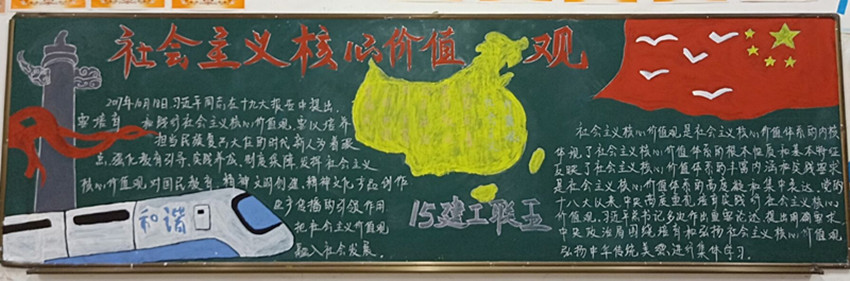 社会主义核心价值观
2017年10月18日,习近平同志在十九大报告中提出,
要培育和践行社会主义核心价值观,要以培养
担当民族复兴大任的时代新人为着眼
点,强化教育引导,实践养成,制度保障,发挥社会主义
核心价值观对国民教育,精神文明创建,精神文化产品创作
生产传播的引领作用
把社会主义价值观
融入社会发展。
和谐
15建工联王
社会主义核心价值观是社会主义核心价值体系的内核
体现了社会主义核心价值体系的根本性质和基本特征
反映了社会主义核心价值体系的丰富内涵和实践要求
是社会主义核心价值体系的高度凝和集中表达,党的
十八大以来中央高度重视培育和践行社会主义核心
价值观,习近平总书记多次作出重要论述,提出明确要求,
中央政治局围绕培育和弘扬社会主义核心价值观,
弘扬中华传统美德,进行集体学习。